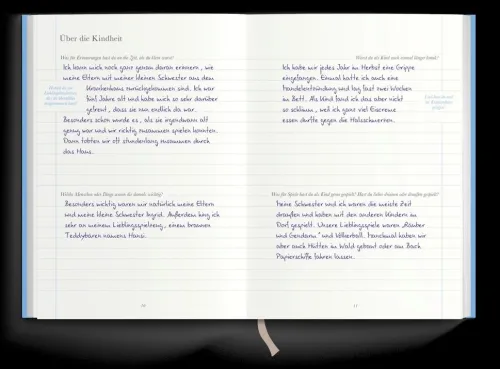 Über die Kindheit
Was für Erinnerungen hast du an die Zeit, als du Kind warst?
Ich kann mich noch ganz genau daran erinnern, wie
meine Eltern mit meiner kleinen Schwester aus dem
Krankenhaus zurückgekommen sind. Ich war
fünf Jahre alt und habe mich so sehr darüber
gefreut, dass sie nun endlich da war.
Besonders schön wurde es, als sie irgendwann alt
genug war und wir richtig zusammen spielen konnten.
Dann tobten wir oft stundenlang zusammen durch
das Haus.
Welche Menschen oder Dinge waren dir damals wichtig?
Besonders wichtig waren mir natürlich meine Eltern
und meine kleine Schwester Ingrid. Außerdem hing ich
sehr an meinem Lieblingsspielzeug, einem braunen
Teddybären namens Hansi.
Warst du als Kind auch einmal länger krank?
Ich habe mir jedes Jahr im Herbst eine Grippe
eingefangen. Einmal hatte ich auch eine
Mandelentzündung und lag fast zwei Wochen
im Bett. Als Kind fand ich das aber nicht
so schlimm, weil ich ganz viel Eiscreme
essen durfte gegen die Halsschmerzen.
Was für Spiele hast du als Kind gerne gespielt? Hast du lieber drinnen oder draußen gespielt?
Meine Schwester und ich waren die meiste Zeit
draußen und haben mit den anderen Kindern im
Dorf gespielt. Unsere Lieblingsspiele waren „Räuber
und Gendarm" und Völkerball. Manchmal haben wir
aber auch Hütten im Wald gebaut oder am Bach
Papierschiffe fahren lassen.
10
11